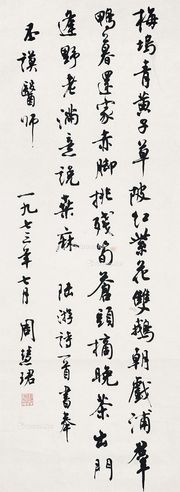 梅塢青黃子草陂紅紫花雙鵝朝戲浦羣
鴨暮還家赤腳挑殘筍蒼頭摘晚茶出門
逢野老滿意說桑麻 陸游詩一首書奉
丕謨醫師 一九七三年七月 周慧珺